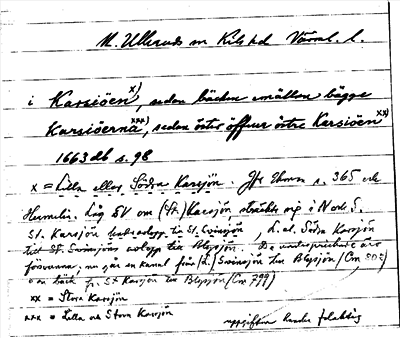 N. Ullerud sn Kils hd Värml. l.
i Karsiöen x), sedan bäcken emällan bägge
Karsiöerna xxx), sedan öster öffuer östre Karsiöen xx)
1663 db s. 98
x = Lilla eller Södra Karsjön. Jfr s. 365 och
Låg SV om (St.) Karsjön, sträckte sig i N och S.
St. Karsjön till St. Svinsjön, L. el. Södra Karsjön
till St. Svinsjöns avlopp till Blysjön. De äro
försvunna; nu går en kanal från (L.) Svinsjön till Blysjön
o en bäck fr. St Karsjön till Blysjön
xx = Stora Karsjön
xxx = Lilla och Stora Karsjön
uppgiften kanske felaktig